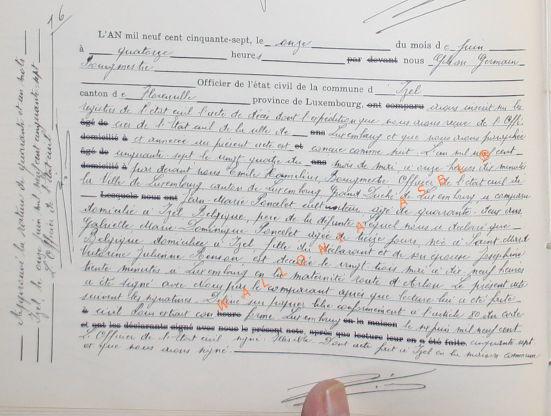 16
L'AN mil neuf cent cinquante-sept, le onze du mois de juin
à quatorze heures par devant nous Ghlain Germain
Bourgmestre
Officier de l'état civil de la commune d Izel
canton de Florenville province de Luxembourg, ont comparu avons inscrit sur les
registres de l'état civil l'acte de décès dont l'expédition que nous avons reçue de l'Offi
âgé de cier de l'Etat civil de la ville de ans Luxembourg et que nous avons paraphée
domicilié à et annexée au présent acte est et conçue comme suit L'an mil neuf cent
âgé de cinquante sept le vingt quatre du ans mois de mai à onze heures dix minutes
domicilié à par devant nous Emile Hamilius, Bourgmestre Officier de l'état civil de
la Ville de Luxembourg, canton de Luxembourg Grand Duché de Luxembourg a comparu
Lesquels nous ont Jean Marie Poncelet âgé de quarante deux ans
domicilié à Izel Belgique, père de la défunte lequel nous a déclaré que
Gabrielle Marie Dominique Poncelet âgée de treize jours, née à Saint Mard
Belgique domiciliée à Izel, fille du déclarant et de son épouse Joséphine
Victorine Julienne est décédée le vingt trois mai à dix neuf heures
trente minutes à Luxembourg en la maternité route d'Arlon. Le présent acte
a été signé avec nous par le comparant après que lecture lui a été faite
suivent les signatures. sur papier libre conformément à l'article 80 du code
à civil l'an extrait con heure forme Luxembourg en la maison le sept juin mil neuf cent
et ont les déclarants signé avec nous le présent acte, après que lecture leur en a été faite. cinquante sept
L'Officier de l'état civil signé Dont acte fait à Izel en la maison commune
et que nous avons signé.
Approuvé la rature de quarante et un mots
Izel le onze juin mil neuf cent cinquante sept
L'Officier de l'état civil
WALLONIA ASBL ®